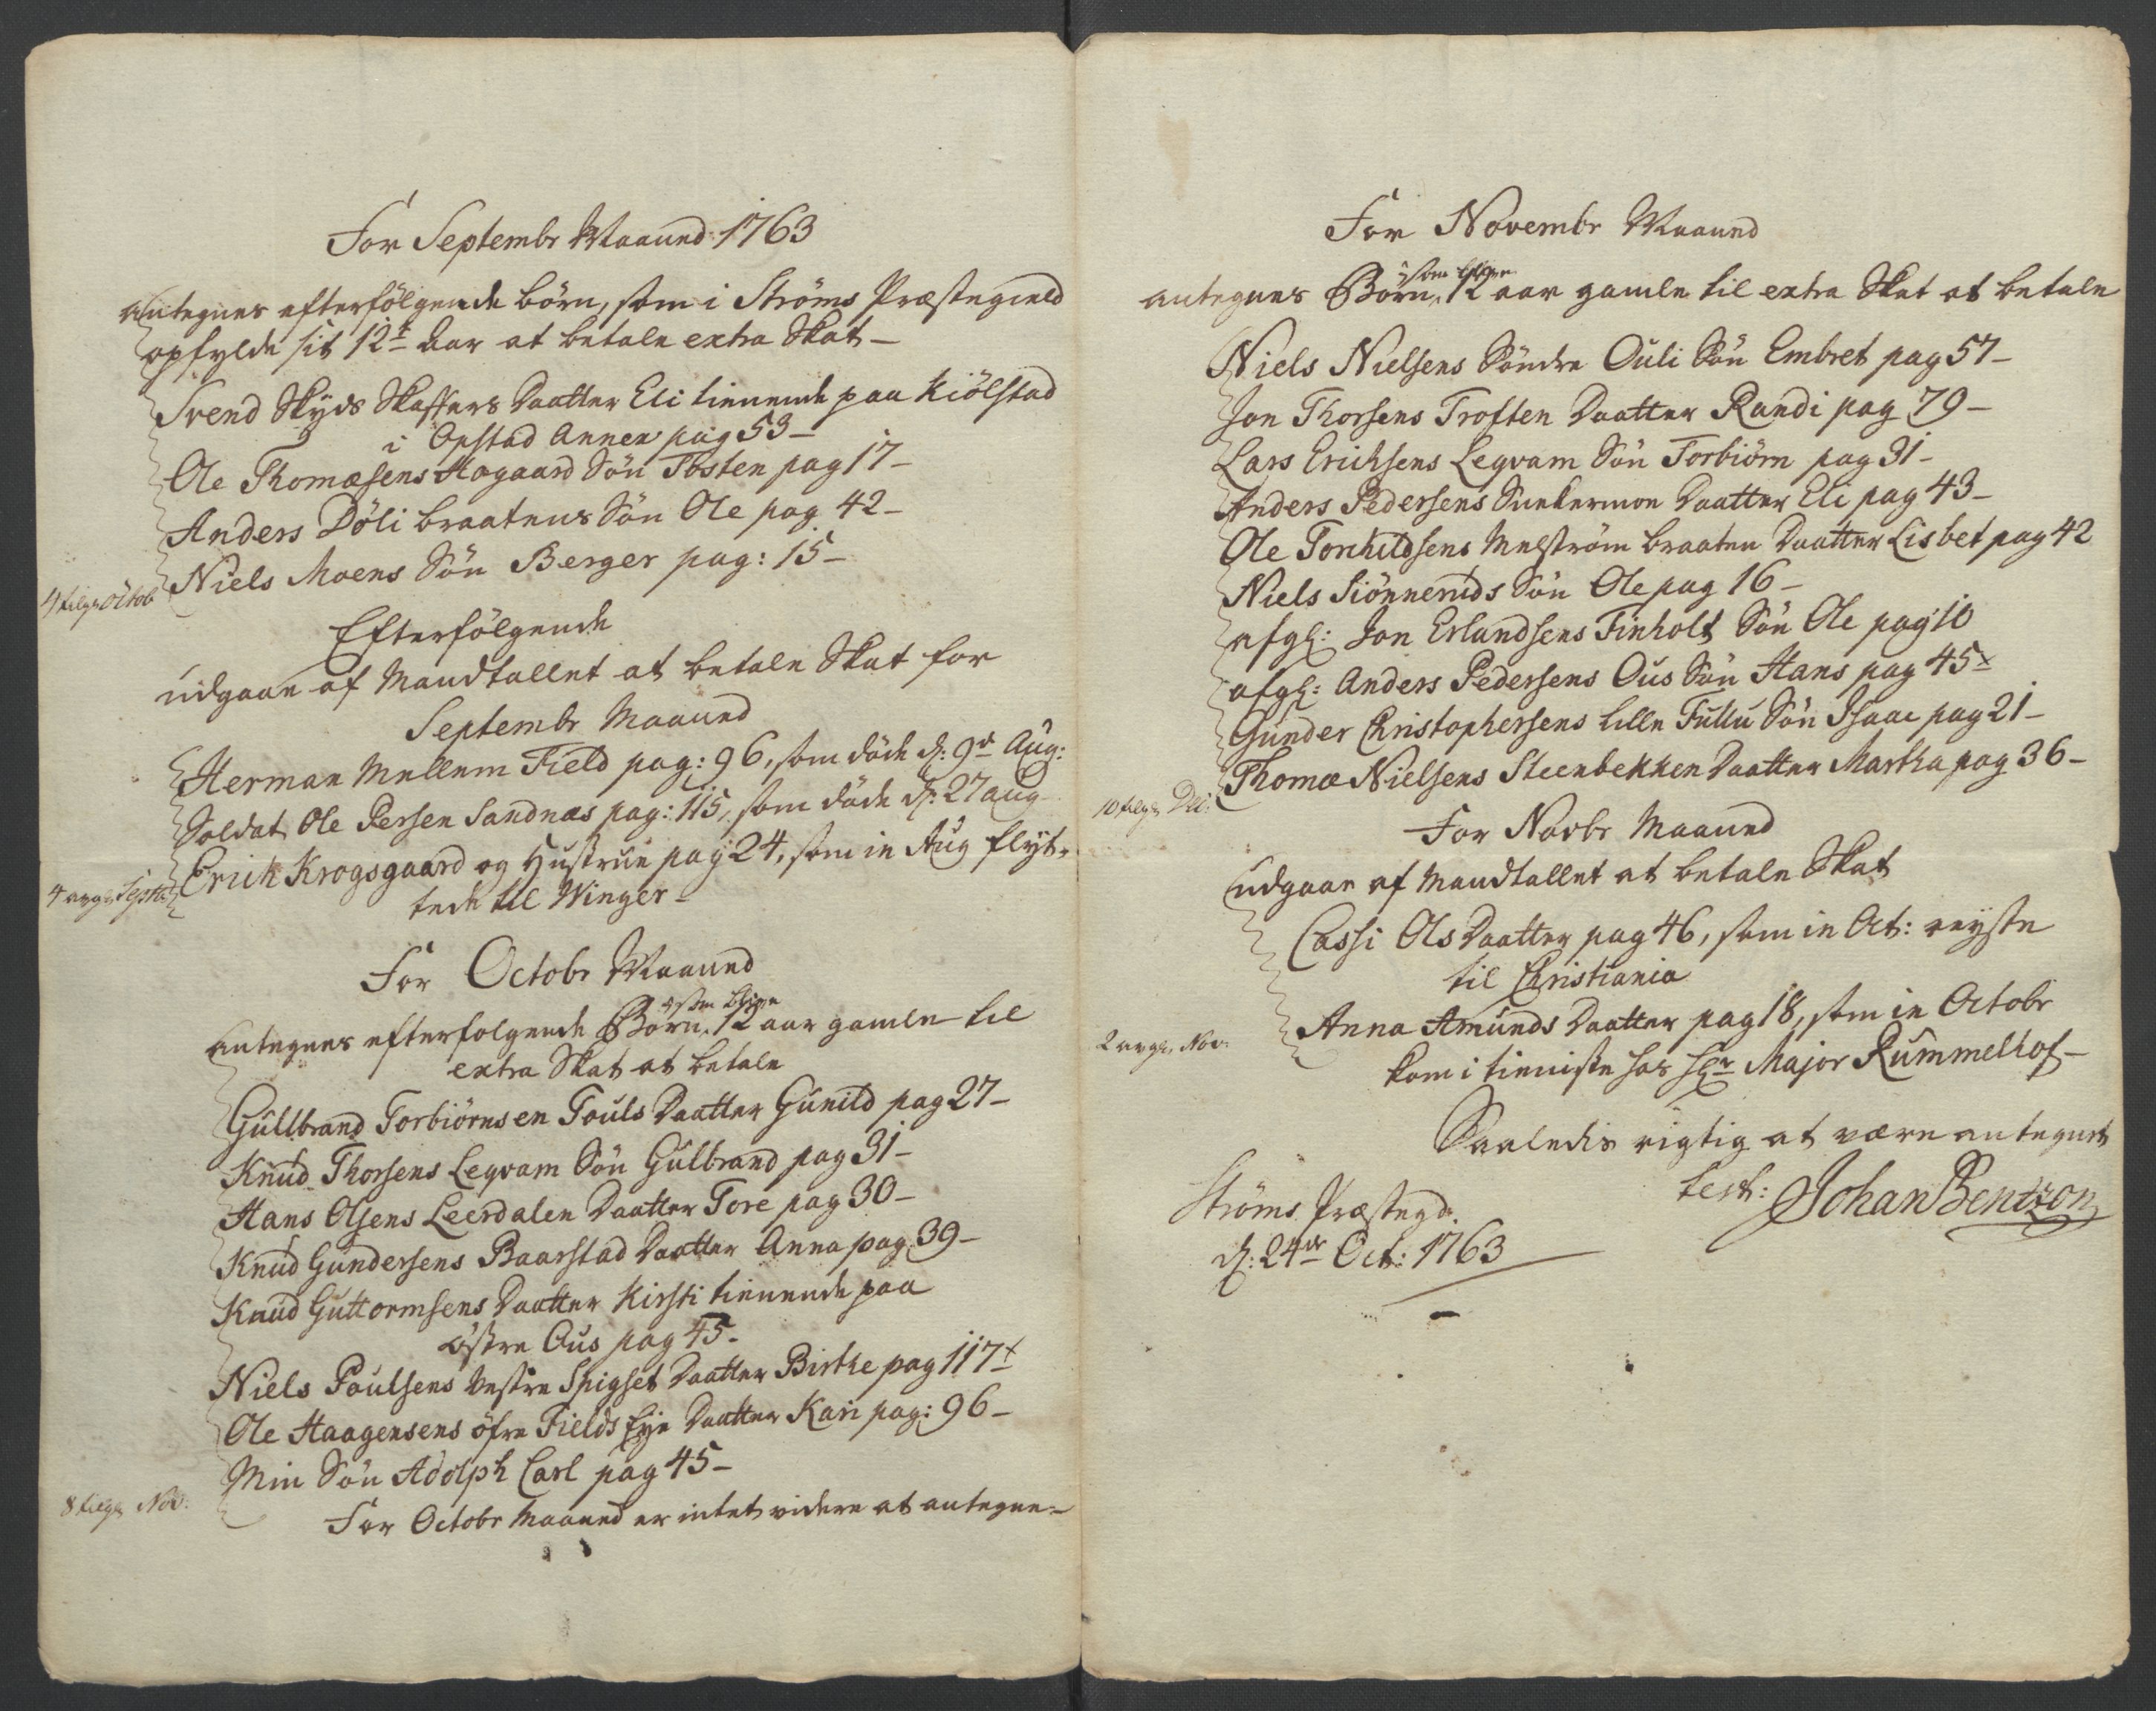 For Septembr Maaned 1763
antegnes efterfölgende börn, som i Ströms Præstegield
opfylde sit 12te Aar at betale extra Skat –
Svend Skyds Skaffers Daatter Eli tienende paa Kiölstad
i Opstad Annex pag 53 –
Ole Thomæsens Hogaard Sön Tosten pag 17 –
Anders Döli braatens Sön Ole pag 42 –
Niels Moens Sön Berger pag: 15 –
4 tilg: Octob
Efterfölgende
udgaar af Mandtallet at betale Skat for
Septembr Maaned
Herman Mellem Field pag: 96, som döde d: 9de Aug:
Soldat Ole Persen Sandnæs pag: 115, som döde d: 27 aug
Erich Krogsgaard og Hustrue pag 24, som in Aug flyt-
4 avg: Septb:
tede til Winger –
For Octobr Maaned
som blive
antegnes efterfolgende Börn, 12 aar gamle til
extra Skat at betale
Gullbrand Torbiörnsen Touls Daatter Gunild pag 27 –
Knud Thorsens Leqvam Sön Gulbrand pag 31 –
Hans Olsens Leerdalen Daatter Tore pag 30 –
Knud Gundersens Baarstad Daatter Anna pag. 39 –
Knud Guttormsens Daatter Kirsti tienende paa
östre Ous pag 45.
Niels Poulsens Vestre Spigset Daatter Birthe pag 117 x
Ole Haagensens öfre Fields Eye Daatter Kari pag: 96 –
Min Sön Adolph Carl pag 45 –
8 tilg: Nov:
For Octobr Maaned er intet videre at antegne –
For Novembr Maaned
som blive
antegnes Börn, 12 aar gamle til extra Skat at betale
Niels Nielsens Söndre Ouli Sön Embret pag 57 –
Jon Thorsens Troften Daatter Randi pag 79 –
Lars Erichsens Leqvam Sön Torbiörn pag 31 –
Anders Pedersens Sunkermon Daatter Eli pag 43 –
Ole Tonhildsens Melström braaten Daatter Lisbet pag 42
Niels Siönneruds Sön Ole pag 16 –
afgl: Jon Erlandsens Finholt Sön Ole pag 10
afgl: Anders Pedersens Ous Sön Hans pag 45 x
Gunder Christophersens lille Fullu Sön Isaac pag 21 –
Thomæ Nielsens Steenbekken Daatter Martha pag 36 –
10 tilg: Dec:
For Novbr Maaned
udgaar af Mandtallet at betale Skat
Cassi Ols Daatter pag 46, som in Oct: reyste
til Christiania
Anna Amunds Daatter pag 18, som in Octobr
2 avg: Nov:
kom i tieniste hos Hr Major Rummelhof –
Saaledis rigtig at være antegnet
test: Johan Bentzon
Ströms Præstegd:
d: 24de Oct: 1763